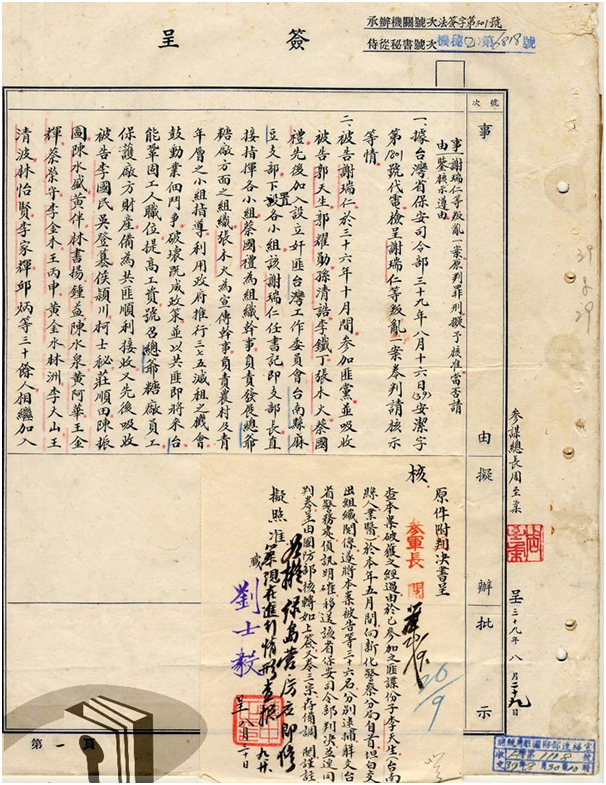 簽呈
承辦機關號次法簽字第501號
侍從秘書號次機秘(乙)第6818號
號次
事由
擬辦
批示
事由
謝瑞仁等叛亂一案原判罪刑擬予核准當否請
鑒核示遵由
一、據台灣省保安司令部三十九年八月十六日(39)安潔字
第1801號代電檢呈謝瑞仁等叛亂一案卷判請核示
等情
二、被告謝瑞仁於三十六年十月間參加匪黨並吸收
被告郭天生郭耀勳孫清誥李鐵丁張木火蔡國
禮先後加入設立奸匪台灣工作委員會台南縣麻
豆支部下設置各小組該謝瑞仁任書記即支部長直
接指揮各小組蔡國禮為組織幹事負責發展總爺
糖廠方面之組織張木火為宣傳幹事負責農村及青
年層之小組指導利用政府推行三七五減租之機會
鼓動業佃鬥爭破壞既成政策並以共匪即將來台
能鞏固工人職位提高工資號召總爺糖廠員工
保護廠方財產備為共匪順利接收又先後吸收
被告李國民吳登基侯頴川柯士祕莊順田陳振
圖陳水盛黃伴林書揚鍾益陳水泉黃阿華王金
輝蔡榮守李金木王丙申黃金水林洲李大山王
清波林怡賢李家輝邱炳等三十餘人相繼加入
參謀總長周至柔
呈三十九年八月二十九日
原件附判決書呈
核
參軍長閱
26/9
查本案破獲之經過由於已參加之匪諜份子李天生(台南
縣人業醫)於本年五月間向新化警察分局自首坦白交
出組織關係遂將本案被告等三十六名分別逮捕解文台
省警務處偵訊明確移送該省保安司令部判決並連同
判卷呈由國防部核轉如上簽又卷三宗存備調閱謹註
擬照准
職劉士毅
呈
為擬保島營房立即修
築現在進行情形查報
39
8
29
總統府駐國防部連絡室
第一頁